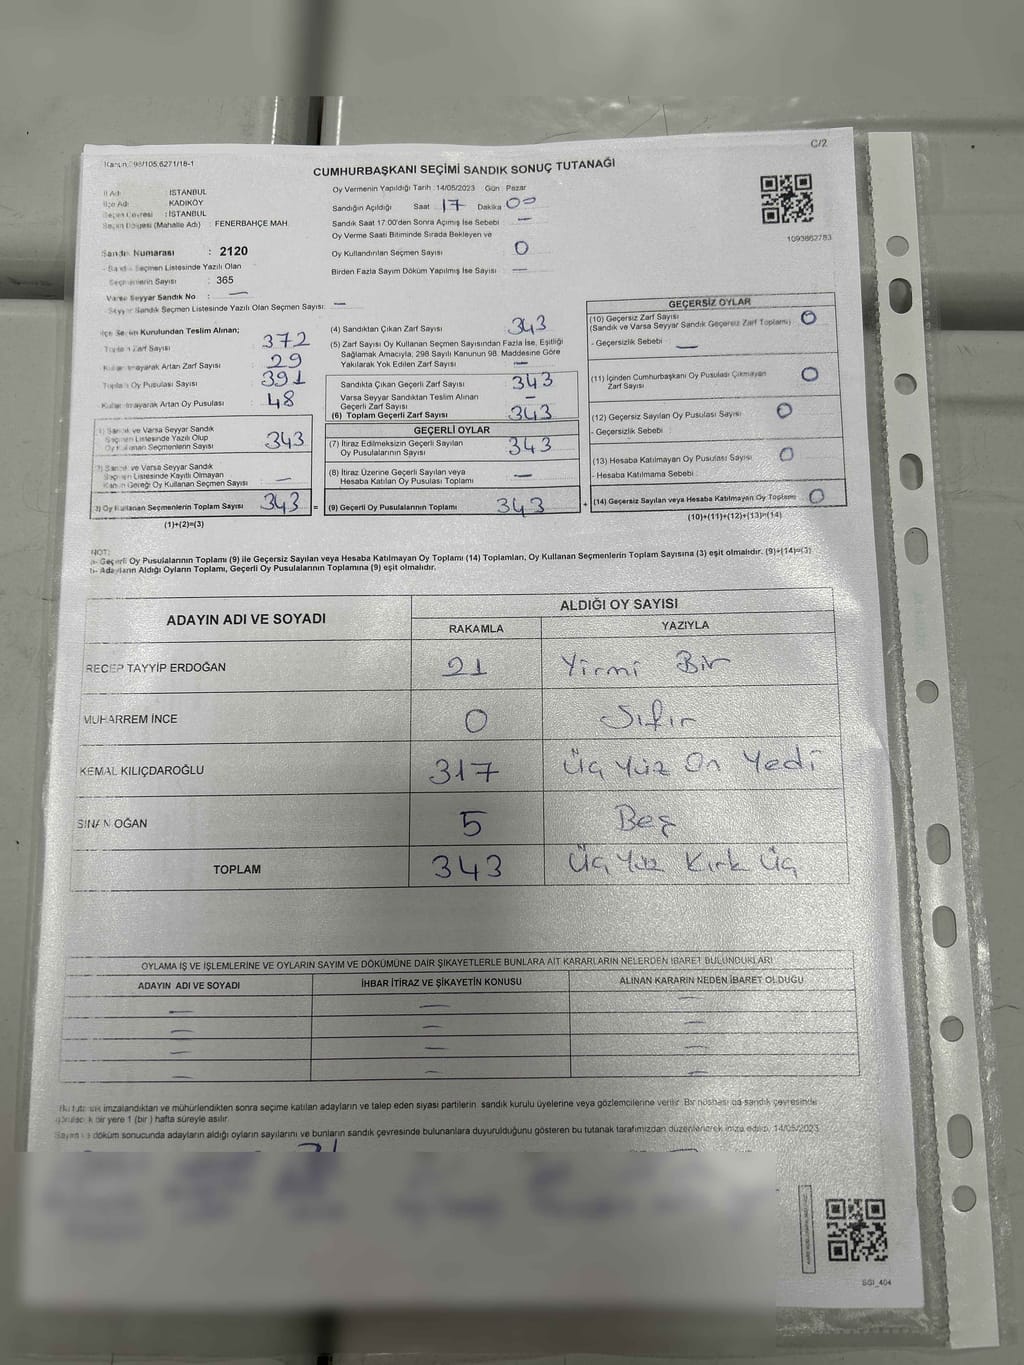 C/2
Kanun : 298/105,6271/18-1
CUMHURBAŞKANI SEÇİMİ SANDIK SONUÇ TUTANAĞI
İl Adı : İSTANBUL
İlçe Adı : KADIKÖY
Seçim Çevresi : İSTANBUL
Seçim Bölgesi (Mahalle Adı) : FENERBAHÇE MAH.
Sandık Numarası : 2120
Sandık Seçmen Listesinde Yazılı Olan
Seçmenlerin Sayısı : 365
Varsa Seyyar Sandık No : —
Seyyar Sandık Seçmen Listesinde Yazılı Olan Seçmen Sayısı: —
Oy Vermenin Yapıldığı Tarih : 14/05/2023 Gün : Pazar
Sandığın Açıldığı Saat 17 Dakika 00
Sandık Saat 17:00'den Sonra Açımış İse Sebebi : —
Oy Verme Saati Bitiminde Sırada Bekleyen ve
Oy Kullandırılan Seçmen Sayısı 0
Birden Fazla Sayım Döküm Yapılmış İse Sayısı —
1093862783
İlçe Seçim Kurulundan Teslim Alınan;
Toplam Zarf Sayısı 372
Kullanılmayarak Artan Zarf Sayısı 29
Toplam Oy Pusulası Sayısı 391
Kullanılmayarak Artan Oy Pusulası 48
1) Sandık ve Varsa Seyyar Sandık
Seçmen Listesinde Yazılı Olup
Oy Kullanan Seçmenlerin Sayısı 343
2) Sandık ve Varsa Seyyar Sandık
Seçmen Listesinde Kayıtlı Olmayan
Kanun Gereği Oy Kullanan Seçmen Sayısı —
3) Oy Kullanan Seçmenlerin Toplam Sayısı 343 =
(1)+(2)=(3)
(4) Sandıktan Çıkan Zarf Sayısı 343
(5) Zarf Sayısı Oy Kullanan Seçmen Sayısından Fazla İse, Eşitliği
Sağlamak Amacıyla, 298 Sayılı Kanunun 98. Maddesine Göre
Yakılarak Yok Edilen Zarf Sayısı —
Sandıkta Çıkan Geçerli Zarf Sayısı 343
Varsa Seyyar Sandıktan Teslim Alınan
Geçerli Zarf Sayısı —
(6) Toplam Geçerli Zarf Sayısı 343
GEÇERLİ OYLAR
(7) İtiraz Edilmeksizin Geçerli Sayılan
Oy Pusulalarının Sayısı 343
(8) İtiraz Üzerine Geçerli Sayılan veya
Hesaba Katılan Oy Pusulası Toplamı —
(9) Geçerli Oy Pusulalarının Toplamı 343 +
GEÇERSİZ OYLAR
(10) Geçersiz Zarf Sayısı 0
(Sandık ve Varsa Seyyar Sandık Geçersiz Zarf Toplamı)
- Geçersizlik Sebebi : —
(11) İçinden Cumhurbaşkanı Oy Pusulası Çıkmayan
Zarf Sayısı 0
(12) Geçersiz Sayılan Oy Pusulası Sayısı 0
- Geçersizlik Sebebi :
(13) Hesaba Katılmayan Oy Pusulası Sayısı 0
- Hesaba Katılmama Sebebi :
(14) Geçersiz Sayılan veya Hesaba Katılmayan Oy Toplamı 0
(10)+(11)+(12)+(13)=(14)
NOT:
a- Geçerli Oy Pusulalarının Toplamı (9) ile Geçersiz Sayılan veya Hesaba Katılmayan Oy Toplamı (14) Toplamları, Oy Kullanan Seçmenlerin Toplam Sayısına (3) eşit olmalıdır. (9)+(14)=(3)
b- Adayların Aldığı Oyların Toplamı, Geçerli Oy Pusulalarının Toplamına (9) eşit olmalıdır.
ADAYIN ADI VE SOYADI ALDIĞI OY SAYISI
RAKAMLA YAZIYLA
RECEP TAYYİP ERDOĞAN 21 Yirmi Bir
MUHARREM İNCE 0 Sıfır
KEMAL KILIÇDAROĞLU 317 Üç Yüz On Yedi
SİNAN OĞAN 5 Beş
TOPLAM 343 Üç Yüz Kırk Üç
OYLAMA İŞ VE İŞLEMLERİNE VE OYLARIN SAYIM VE DÖKÜMÜNE DAİR ŞİKAYETLERLE BUNLARA AİT KARARLARIN NELERDEN İBARET BULUNDUKLARI
ADAYIN ADI VE SOYADI İHBAR İTİRAZ VE ŞİKAYETİN KONUSU ALINAN KARARIN NEDEN İBARET OLDUĞU
— — —
— — —
— — —
— — —
Bu tutanak imzalandıktan ve mühürlendikten sonra seçime katılan adayların ve talep eden siyasi partilerin, sandık kurulu üyelerine veya gözlemcilerine verilir. Bir nüshası da sandık çevresinde
görülecek bir yere 1 (bir) hafta süreyle asılır.
Sayım ve döküm sonucunda adayların aldığı oyların sayılarını ve bunların sandık çevresinde bulunanlara duyurulduğunu gösteren bu tutanak tarafımızdan düzenlenerek imza edildi. 14/05/2023
SGI_404